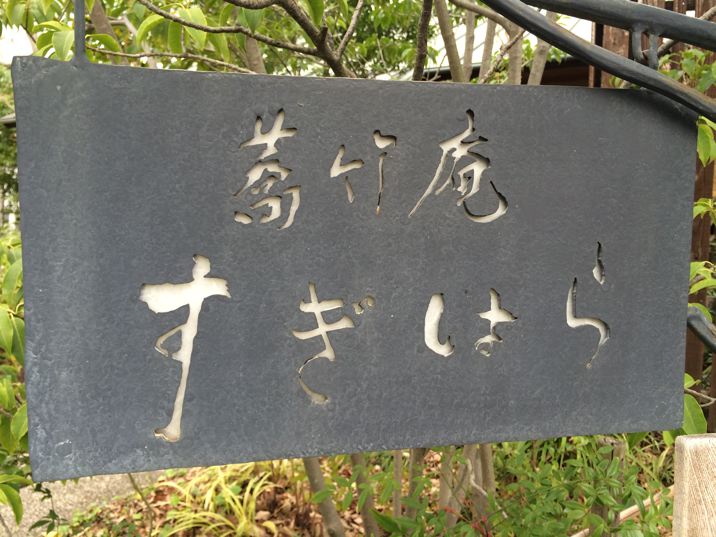 蕎竹庵
すぎはら